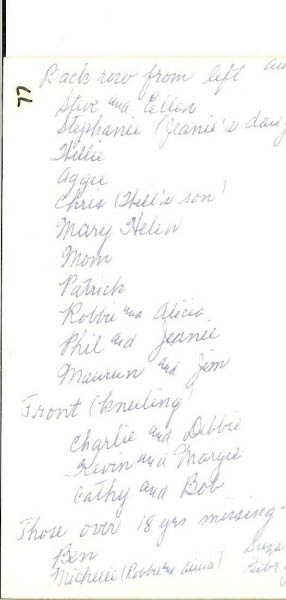 77
Back row from left
Steve and Ellen
Stephanie (Jeanie's
Hillie
Aggie
Chris (Hill's son)
Mary Helen
Mom
Patrick
Robbie and Alicia
Phil and Jeanie
Maureen and Jim
Front (kneeling)
Charlie and Debbie
Kevin and Margie
Cathy and Bob
Those over 18 yrs missing.
Ben
Michelle (Robbie and